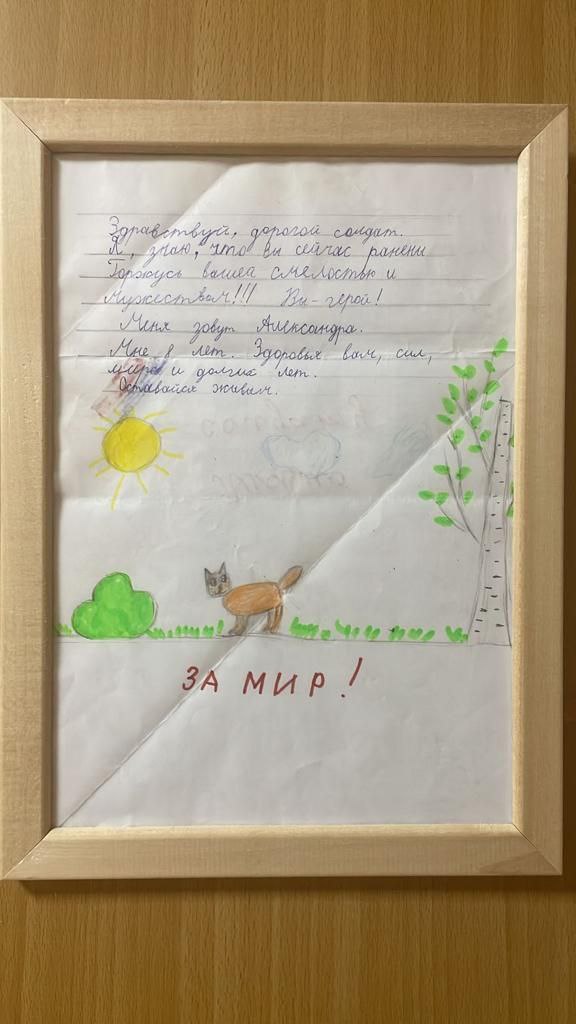 Здравствуй, дорогой солдат.
Я, знаю, что вы сейчас ранены
Горжусь вашей смелостью и
мужеством!!! Вы - герой!
Меня зовут Александра.
Мне 8 лет. Здоровья вам, сил,
мира и долгих лет.
Оставайся живым.
ЗА МИР!